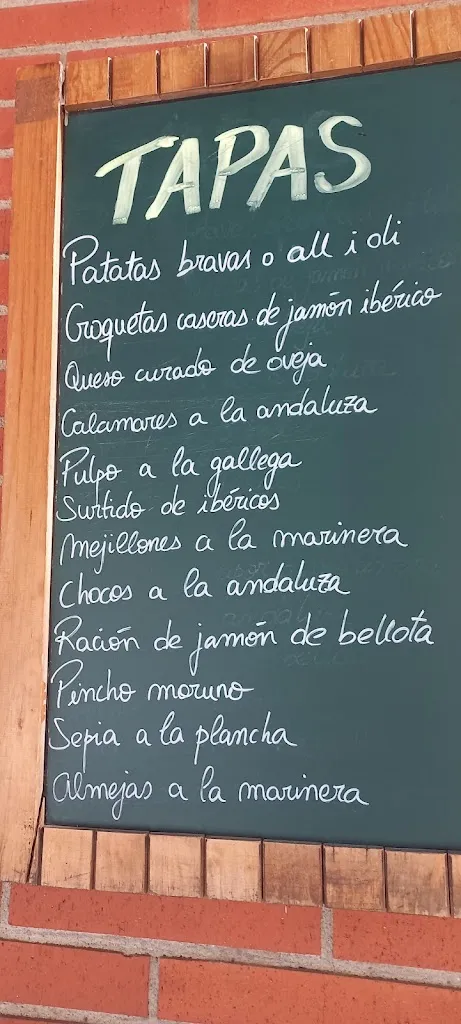 TAPAS
Patatas bravas o all i oli
Croquetas caseras de jamón ibérico
Queso curado de oveja
Calamares a la andaluza
Pulpo a la gallega
Surtido de ibéricos
Mejillones a la marinera
Chocos a la andaluza
Ración de jamón de bellota
Pincho moruno
Sepia a la plancha
Almejas a la marinera